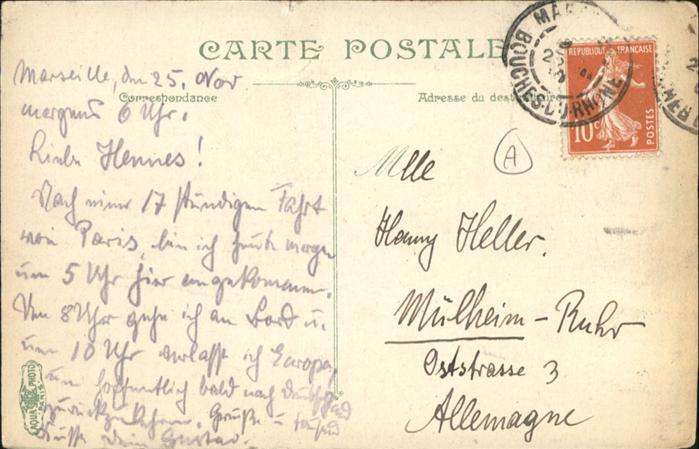 CARTE POSTALE
Correspondance
Adresse du destinataire
MAR
BOUCHES-DU-RHONE
25
REPUBLIQUE FRANÇAISE
10c
POSTES
A
Marseille, den 25. Nov
morgens 6 Uhr.
Liebe Hennes!
Nach einer 17 stündigen Fahrt
von Paris, bin ich heute morgen
um 5 Uhr hier angekommen.
Um 8 Uhr gehe ich an Bord u.
um 10 Uhr verlasse ich Europa,
um hoffentlich bald nach Deutschland
zurückzukehren. Grüße u. tausend
Küsse Dein Gustav.
Mlle
Hanny Heller.
Mülheim-Ruhr
Oststrasse 3
Allemagne
AQUA PHOTO
PARIS